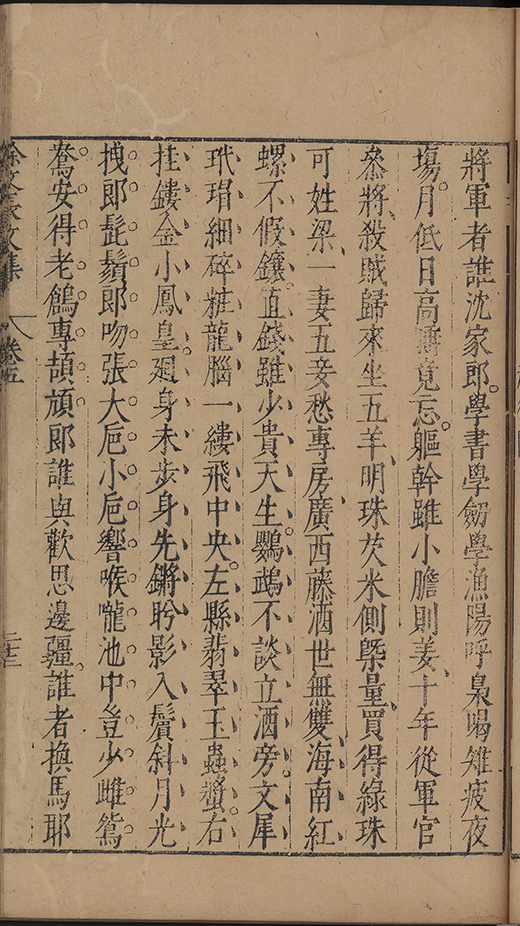 將軍者誰沈家郎學書學劒學漁陽呼梟喝雉疲夜
塲月低日高竟忘軀幹雖小膽則姜十年從軍官
叅將殺賊歸來坐五羊明珠芡米側槩量買得綠珠
可姓梁一妻五妾愁專房廣西藤酒世無雙海南紅
螺不假鑲直錢雖少貴天生鸚鵡不談立酒旁文犀
玳瑁細碎粧龍腦一縷飛中央左縣翡翠玉蟲螿右
挂鏤金小鳳皇廻身未步身先鏘肹影入鬢斜月光
拽郎髭鬚郎吻張大巵小巵響喉嚨池中豈少雌鴛
鴦安得老鶬專頡頏郎誰與歡思邊疆誰者換馬耶
徐文長文集
卷五
二十三